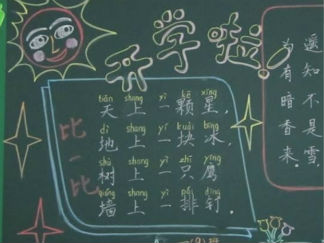 开学啦!
比一比
tiān shang yì kē xīng
天上一颗星,
dì shang yí kuài bīng
地上一块冰,
shù shang yì zhī yīng
树上一只鹰
qiáng shang yì pái dīng
墙上一排钉.
遥知不是雪,
为有暗香来。